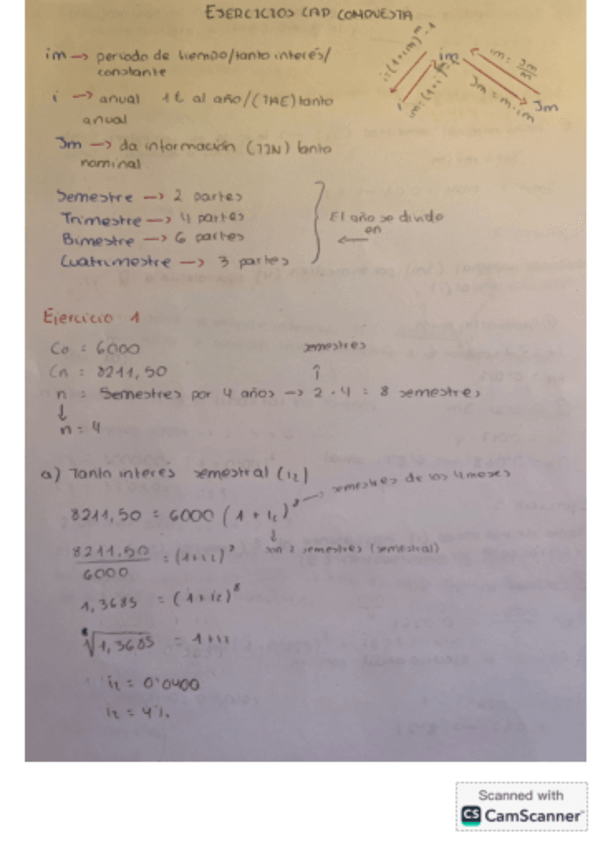 EJERCICIOS CAP COMPUESTA
im → periodo de tiempo/tanto interés/
constante
i → anual 1t al año/(TAE) tanto
anual
Jm → da información (TIN) tanto
nominal
i=(1+im)^m-1
im
im = Jm/m
Jm = m·im
i
Jm
Semestre → 2 partes
Trimestre → 4 partes
Bimestre → 6 partes
Cuatrimestre → 3 partes
El año se divide
en
←
Ejercicio 1
Co = 6000
Cn = 8211,50
semestres
↑
n = Semestres por 4 años → 2 · 4 = 8 semestres
↓
n = 4
a) Tanto interes semestral (i2)
8211,50 = 6000 (1 + i2)^8 → semestres de los 4 meses
↓
son 2 semestres (semestral)
8211.50/6000 = (1+i2)^8
1,3685 = (1+i2)^8
⁸√1,3685 = 1+i2
i2 = 0'0400
i2 = 4%
Scanned with
CS CamScanner